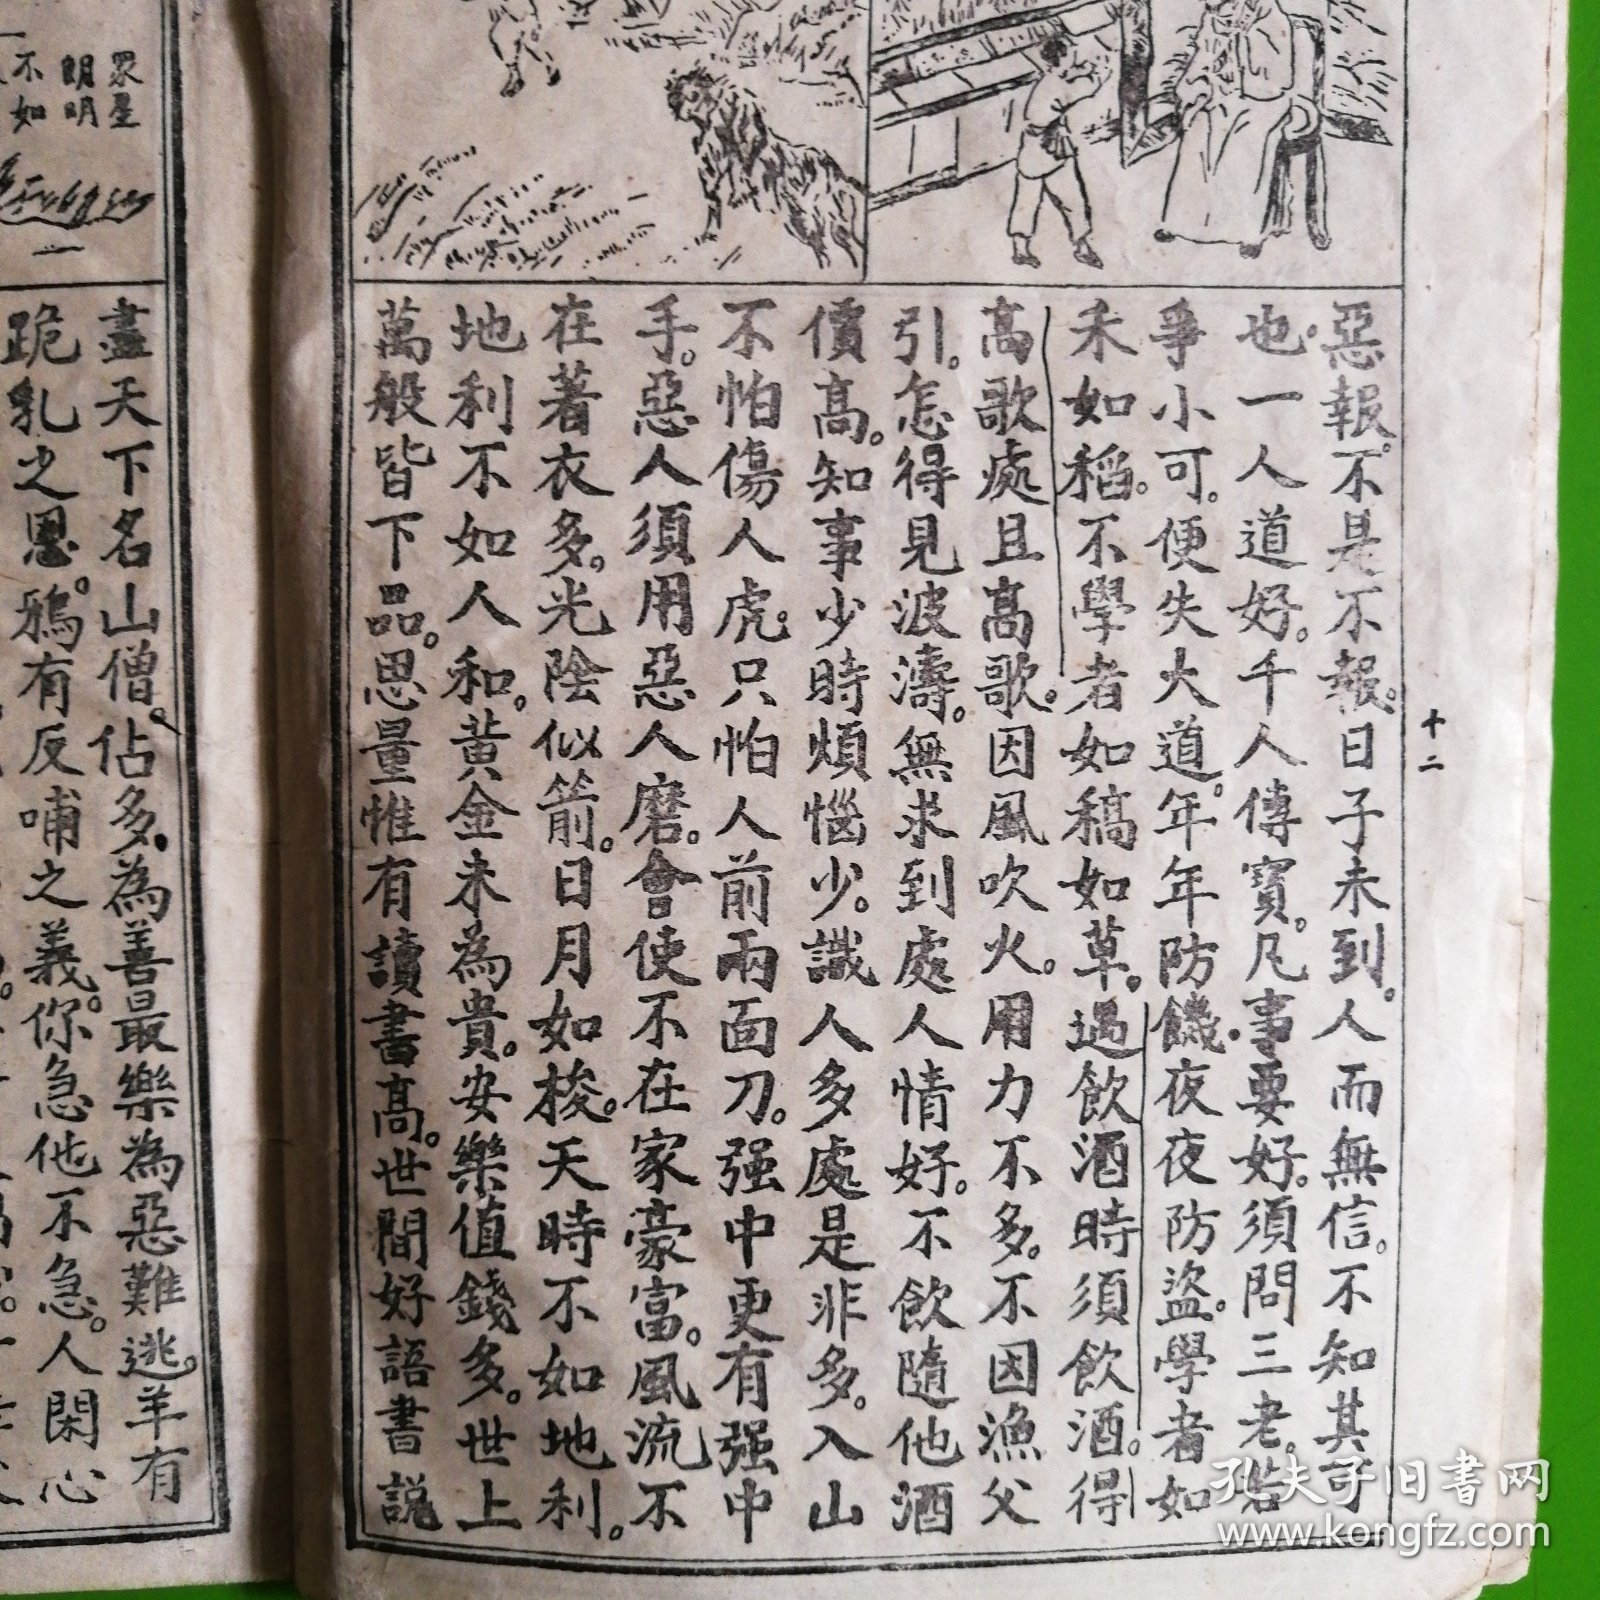 惡報。不是不報。日子未到。人而無信。不知其可
也。一人道好。千人傳寶。凡事要好。須問三老。若
爭小可。便失大道。年年防饑。夜夜防盜。學者如
禾如稻。不學者如稿如草。過飲酒時須飲酒。得
高歌處且高歌。因風吹火。用力不多。不因漁父
引。怎得見波濤。無求到處人情好。不飲隨他酒
價高。知事少時煩惱少。識人多處是非多。入山
不怕傷人虎。只怕人前兩面刀。强中更有强中
手。惡人須用惡人磨。會使不在家豪富。風流不
在著衣多。光陰似箭。日月如梭。天時不如地利。
地利不如人和。黃金未為貴。安樂值錢多。世上
萬般皆下品。思量惟有讀書高。世間好語書説
十二
眾星
朗明
不如
盡天下名山僧佔多。為善最樂為惡難逃。羊有
跪乳之恩。鴉有反哺之義。你急他不急。人閑心
孔夫子旧书网
www.kongfz.com